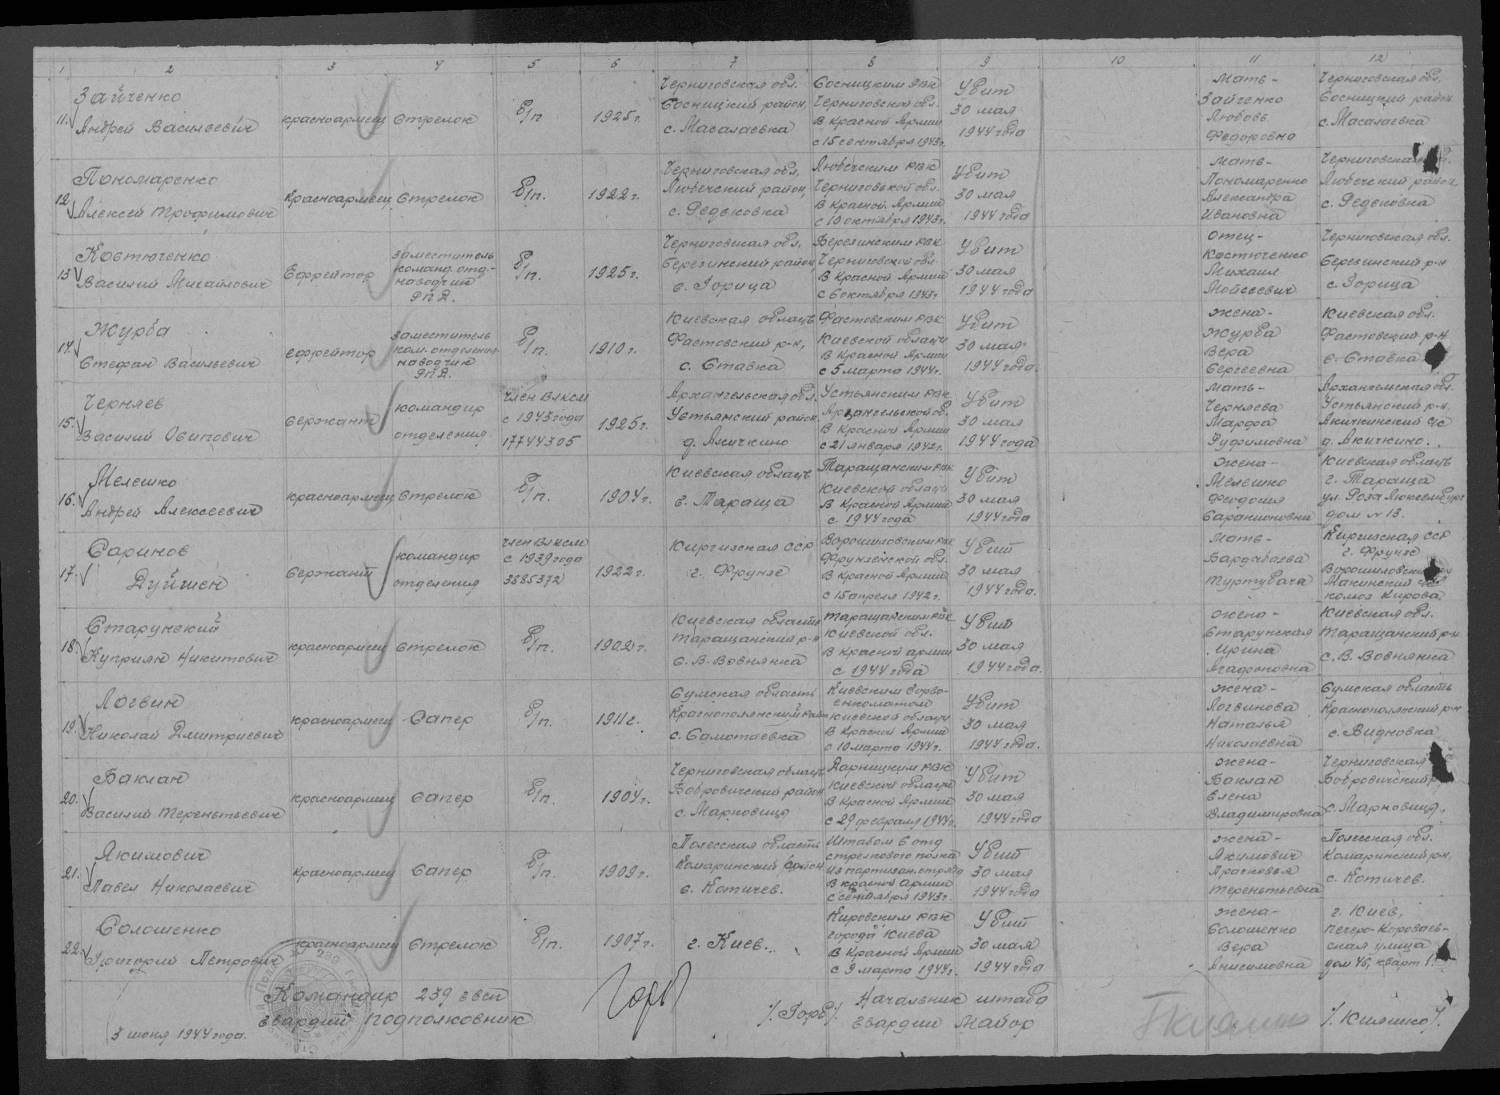 1 2 3 4 5 6 7 8 9 10 11 12
11. Зайченко
Андрей Васильевич
красноармеец
Стрелок
б/п.
1925г.
Черниговская обл.
Сосницкий район,
с. Масалаевка
Сосницким РВК
Черниговской обл.
В Красной Армии
с 15 сентября 1943г.
Убит
30 мая
1944 года
Мать-
Зайченко
Любовь
Федоровна
Черниговская обл.
Сосницкий район
с. Масалаевка
12. Пономаренко
Алексей Трофимович
Красноармеец
Стрелок
б/п.
1922г.
Черниговская обл.
Любечский район,
с. Редьковка
Любечским РВК
Черниговской обл.
В Красной Армии
с 10 октября 1943г.
Убит
30 мая
1944 года
Мать-
Пономаренко
Александра
Ивановна
Черниговская
Любечский район,
с. Редьковка
13 Костюченко
Василий Михайлович
Ефрейтор
заместитель
команд. отд-
наводчик
РПД.
б/п.
1925г.
Черниговская обл.
Березинский район
с. Горица
Березинским РВК
Черниговской обл.
В Красной Армии
с 6 октября 1943г
Убит
30 мая
1944 года
Отец-
Костюченко
Михаил
Мойсеевич
Черниговская обл.
Березинский р-н
с. Горица
14. Журба
Стефан Васильевич
ефрейтор
заместитель
ком. отделения
наводчик
РПД.
б/п.
1910г.
Киевская область
Фастовский р-н,
с. Ставка
Фастовским РВК
Киевской области
В Красной Армии
с 5 марта 1944г.
Убит
30 мая
1944 года.
Жена-
Журба
Вера
Сергеевна
Киевская обл.
Фастовский р-н
с. Ставка
15. Черняев
Василий Осипович
Сержант
командир
отделения
член ВЛКСМ
с 1943 года
17744305
1925г.
Архангельская обл.
Устьянский район,
д. Акичкино
Устьянским РВК
Архангельской об.
В Красной Армии
с 21 января 1942г.
Убит
30 мая
1944 года
Мать-
Черняева
Марфа
Руфимовна
Архангельская обл.
Устьянский р-н.
Акичкинский с/с
д. Акичкино.
16. Мелешко
Андрей Алексеевич
красноармеец
Стрелок
б/п.
1904г.
Киевская область
г. Тараща
Таращанским РВК
Киевской области
В Красной Армии
с 1944 года
Убит
30 мая
1944 года
Жена-
Мелешко
Феодосия
Киевская область
г. Тараща
ул. Роза Люксембург
дом № 13.
17. Саринов
Дуйшен
Сержант
командир
отделения
член ВЛКСМ
с 1939 года
3885372
1922г.
Киргизская ССР
г. Фрунзе
Ворошиловским РВК
Фрунзенской обл.
В Красной Армии
с 15 апреля 1942г.
Убит
30 мая
1944 года.
Мать-
Киргизская ССР
г. Фрунзе
колхоз Кирова
18. Старунский
Куприян Никитович
красноармеец
Стрелок
б/п.
1902г.
Киевская область
Таращанский р-н
с. В. Вовнянка
Таращанским РВК
Киевской обл.
В Красной армии
с 1944 года
Убит
30 мая
1944 года.
жена-
Старунская
Ирина
Агафоновна
Киевская обл.
Таращанский р-н
с. В. Вовнянка
19. Логвин
Николай Дмитриевич
красноармеец
Сапер
б/п.
1911г.
Сумская область
Краснопольянский район
с. Самотаевка
Киевским Горво-
енкоматом
Киевской области
В Красной Армии
с 10 марта 1944г.
Убит
30 мая
1944 года.
жена-
Логвинова
Наталья
Николаевна
Сумская область
Краснопольянский р-н
с. Видновка
20. Баклан
Василий Терентьевич
красноармеец
Сапер
б/п.
1904г.
Черниговская область
Бобровичский район
с. Марковици
Дарницким РВК
Киевской области
В Красной Армии
с 29 февраля 1944г.
Убит
30 мая
1944 года
Жена-
Баклан
Елена
Владимировна
Черниговская
Бобровичский р
с. Марковици.
21. Якимович
Павел Николаевич
красноармеец
Сапер
б/п.
1909г.
Полесская область
Комаринский район
с. Котичев.
Штабом 6 отд
стрелкового полка
из партизан. отряда
В Красной Армии
с сентября 1943г.
Убит
30 мая
1944 года
жена-
Якимович
Прасковья
Терентьевна
Полесская обл.
Комаринский р-н,
с. Котичев.
22. Солошенко
Григорий Петрович
красноармеец
Стрелок
б/п.
1907г.
г. Киев.
Кировским РВК
города Киева
В Красной Армии
с 9 марта 1944г.
Убит
30 мая
1944 года
Жена-
Солошенко
Вера
Анисимовна
г. Киев,
ская улица
дом 46, кварт. 1
Командир 239 гвсп
гвардии подполковник
/. Горб /.
Начальник штаба
гвардии майор
/. Кияшко /.
3 июня 1944 года.